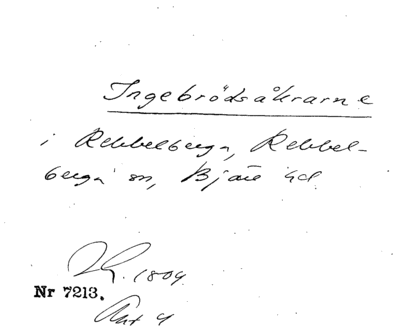 Ingebrödsåkrarne
i Rebbelberga, Rebbel-
berga sn, Bjäre hd.
1804
Nr 7213.
Akt 4